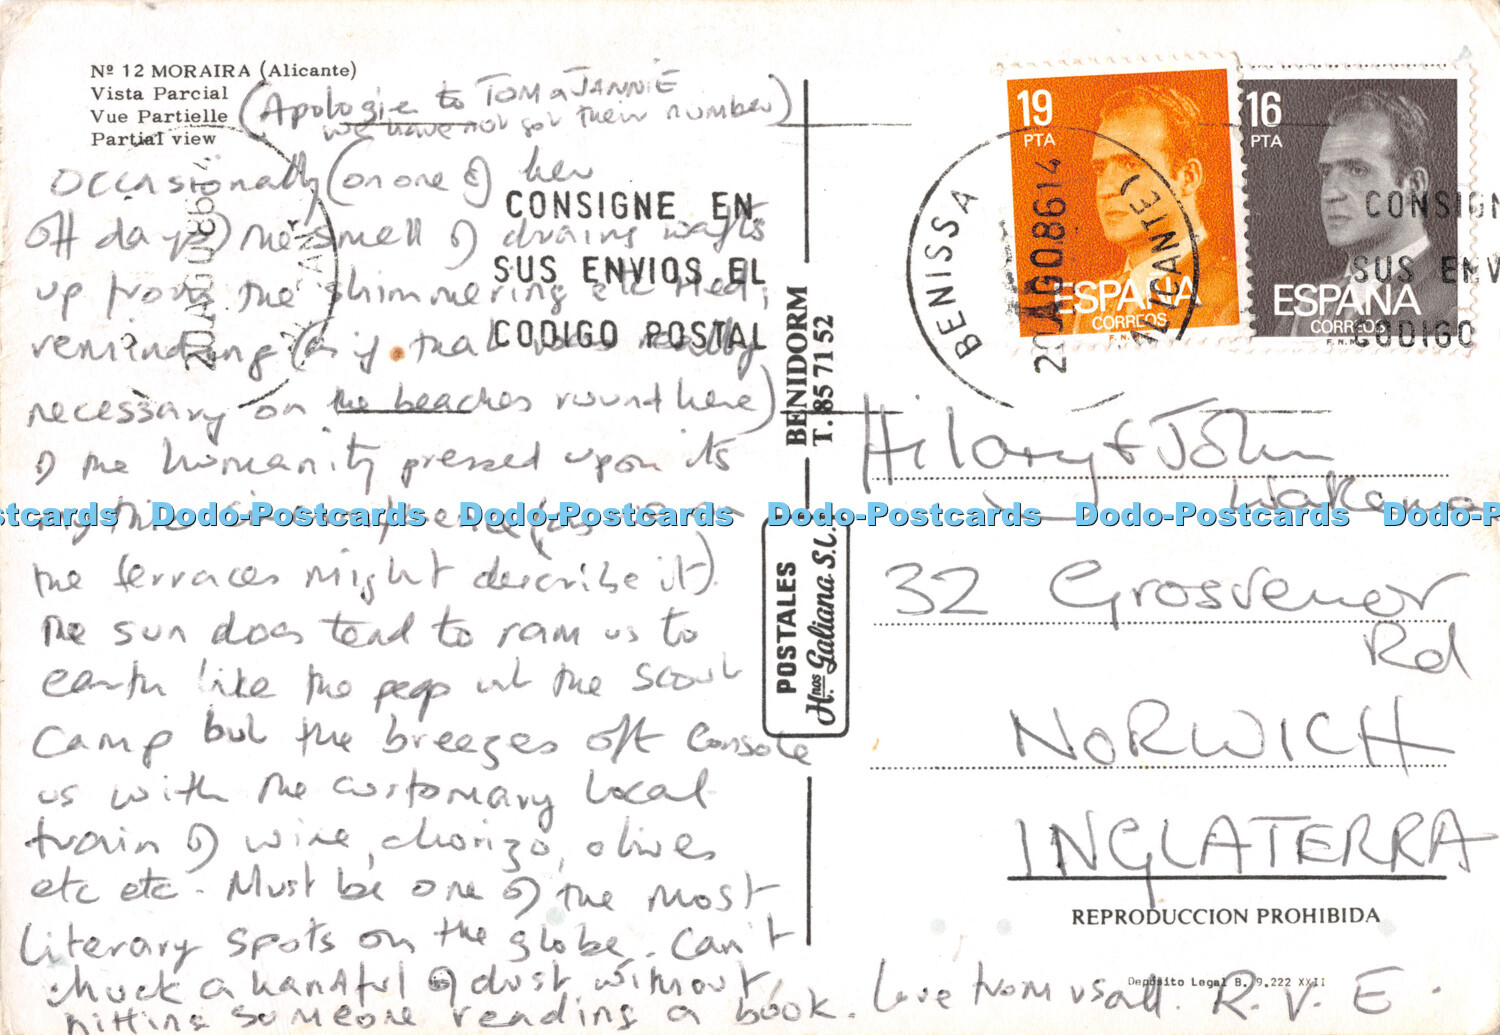 Nº 12 MORAIRA (Alicante)
Vista Parcial
Vue Partielle
Partial view
(Apologie to TOM & JANNIE
we have not got their number)
Occasionally (on one of her
off days) the smell of drains wafts
up from the shimmering etc Med,
reminding (as if that was really
necessary on the beaches round here)
of the humanity pressed upon its
the terraces might describe it).
The sun does tend to ram us to
earth like the pegs at the Scout
Camp but the breezes oft console
us with the customary local
train of wine, chorizo, olives
etc etc. Must be one of the most
literary spots on the globe. Can't
chuck a handful of dust without
hitting someone reading a book. Love from us all. R. V. E.
CONSIGNE EN
SUS ENVIOS EL
CODIGO POSTAL
BENIDORM
T. 85 71 52
POSTALES
Hnos. Galiana S.L.
19
PTA
ESPAÑA
CORREOS
F.N.
16
PTA
ESPAÑA
CORREOS
F.N.M
BENISSA
20 AGO 86 14
(ALICANTE)
CONSIGN
SUS ENV
CODIGO
Hilary & John
32 Grosvenor
Rd
NORWICH
INGLATERRA
REPRODUCCION PROHIBIDA
Depósito Legal B. 9.222 XXII
stcards Dodo-Postcards Dodo-Postcards Dodo-Postcards Dodo-Postcards Dodo-P